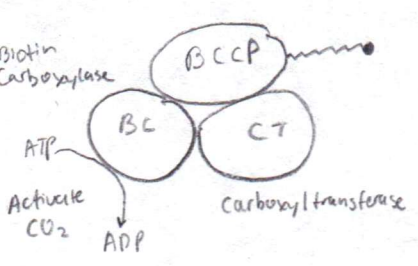 Biotin
Carboxylase
BCCP
BC
CT
ATP
Activate
CO2
ADP
Carboxyltransferase